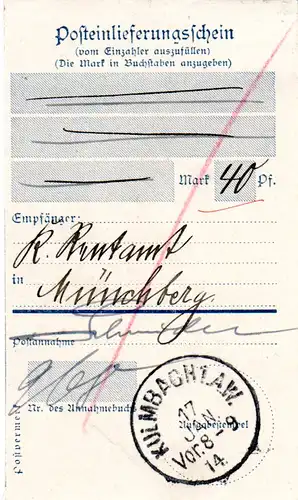 Posteinlieferungsschein
(vom Einzahler auszufüllen)
(Die Mark in Buchstaben anzugeben)
Mark 40 Pf.
Empfänger:
K. Rentamt
in Münchberg.
Postannahme
960
Nr. des Annahmebuchs
Aufgabestempel
Postvermerk
KULMBACH 1. A.W.
17
JAN
Vor. 8-9
14.